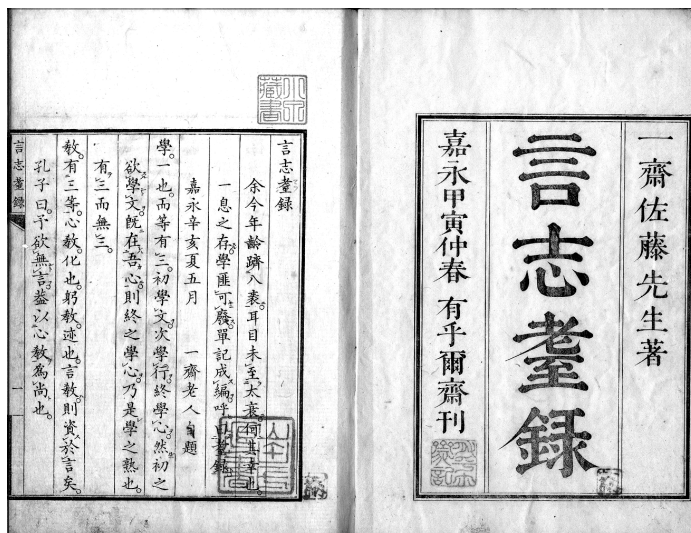 一齋佐藤先生著
言志耋録
嘉永甲寅仲春 有乎爾齋刊
言志耋録
余今年齡躋八袠耳目未至太衰何其幸也
一息之存學匪可廢單記成編呼曰耋錄
嘉永辛亥夏五月 一齋老人自題
學一也而等有三初學文次學行終學心然初之
欲學文既在吾心則終之學心乃是學之熟也
有三而無三
教有三等心教化也躬教迹也言教則資於言矣
孔子曰予欲無言蓋以心教為尚也
言志耋錄
一
藏書